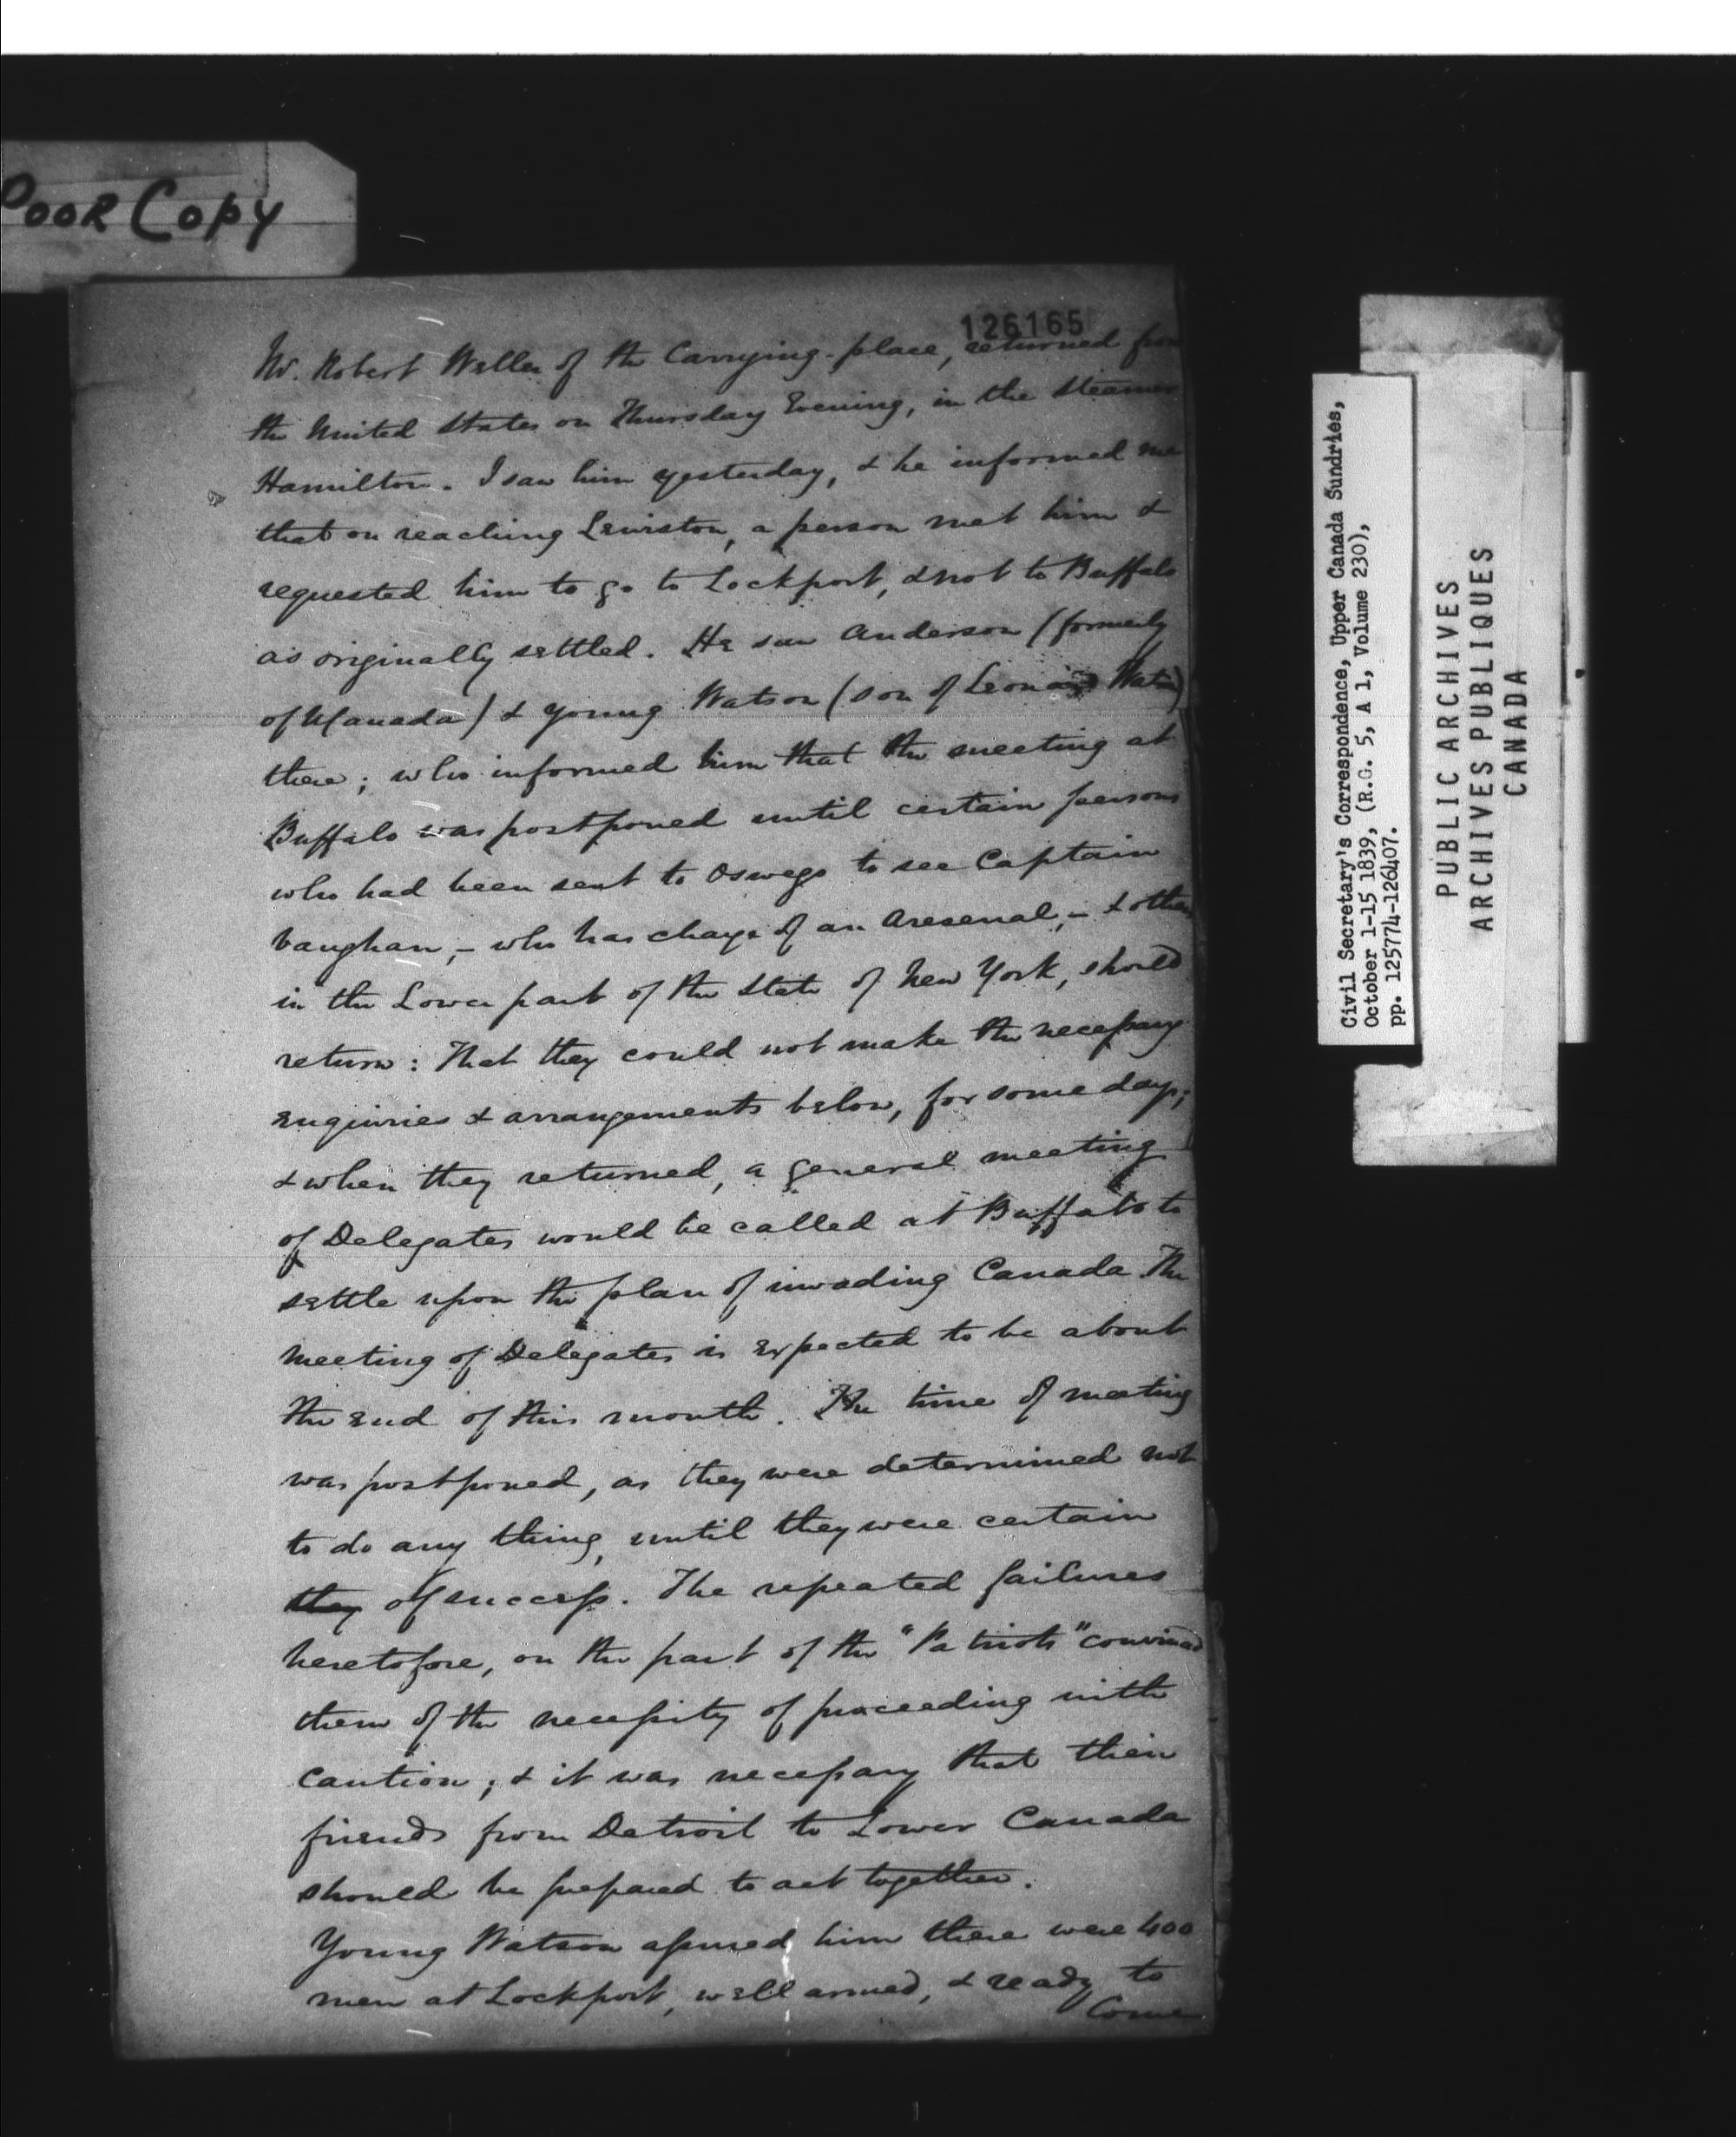 POOR COPY
126165
Mr. Robert Weller of the Carrying-place, returned from
the United States on Thursday Evening, in the Steamer
Hamilton. I saw him yesterday, & he informed me
that on reaching Lewiston, a person met him &
requested him to go to Lockport, & not to Buffalo
as originally settled. He saw Anderson (formerly
of U Canada) & young Watson (son of Leonard Watson)
there; who informed him that the meeting at
Buffalo was postponed until certain persons
who had been sent to Oswego to see Captain
Vaughan, – who has charge of an Aresenal, – & others
in the Lower part of the State of New York, should
return: That they could not make the necessary
enquiries & arrangements below, for some days;
& when they returned, a general meeting
of Delegates would be called at Buffalo to
settle upon the plan of invading Canada. The
meeting of Delegates is expected to be about
the end of this month. The time of meeting
was postponed, as they were determined not
to do any thing, until they were certain
they of success. The repeated failures
heretofore, on the part of the "Patriots" convinced
them of the necessity of proceeding with
caution; & it was necessary that their
friends from Detroit to Lower Canada
should be prepared to act together.
Young Watson assured him there were 400
men at Lockport, well armed, & ready to
Come
Civil Secretary's Correspondence, Upper Canada Sundries,
October 1-15 1839, (R.G. 5, A 1, Volume 230),
pp. 125774-126407.
PUBLIC ARCHIVES
ARCHIVES PUBLIQUES
CANADA